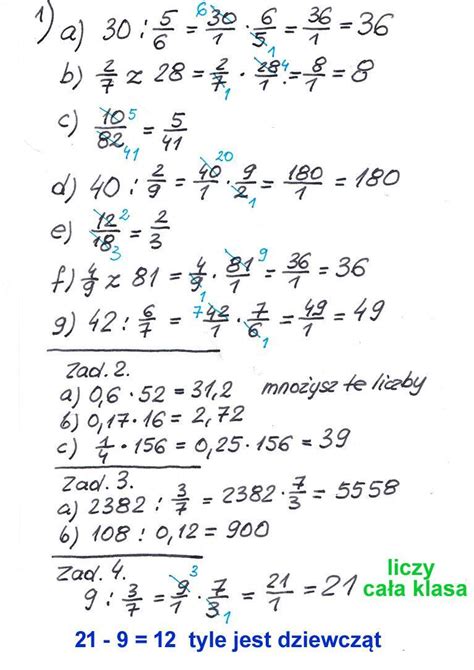 1) a) 30 : 5/6 = 30/1 · 6/5 = 36/1 = 36
6 1
b) 2/7 z 28 = 2/7 · 28/1 = 8/1 = 8
4 1
c) 10/82 = 5/41
5 41
d) 40 : 2/9 = 40/1 · 9/2 = 180/1 = 180
20 1
e) 12/18 = 2/3
2 3
f) 4/9 z 81 = 4/9 · 81/1 = 36/1 = 36
9 1
g) 42 : 6/7 = 42/1 · 7/6 = 49/1 = 49
7 1
Zad. 2.
a) 0,6 · 52 = 31,2 mnożysz te liczby
b) 0,17 · 16 = 2,72
c) 1/4 · 156 = 0,25 · 156 = 39
Zad. 3.
a) 2382 : 3/7 = 2382 · 7/3 = 5558
b) 108 : 0,12 = 900
Zad. 4.
9 : 3/7 = 9/1 · 7/3 = 21/1 = 21 liczy cała klasa
3 1
21 - 9 = 12 tyle jest dziewcząt